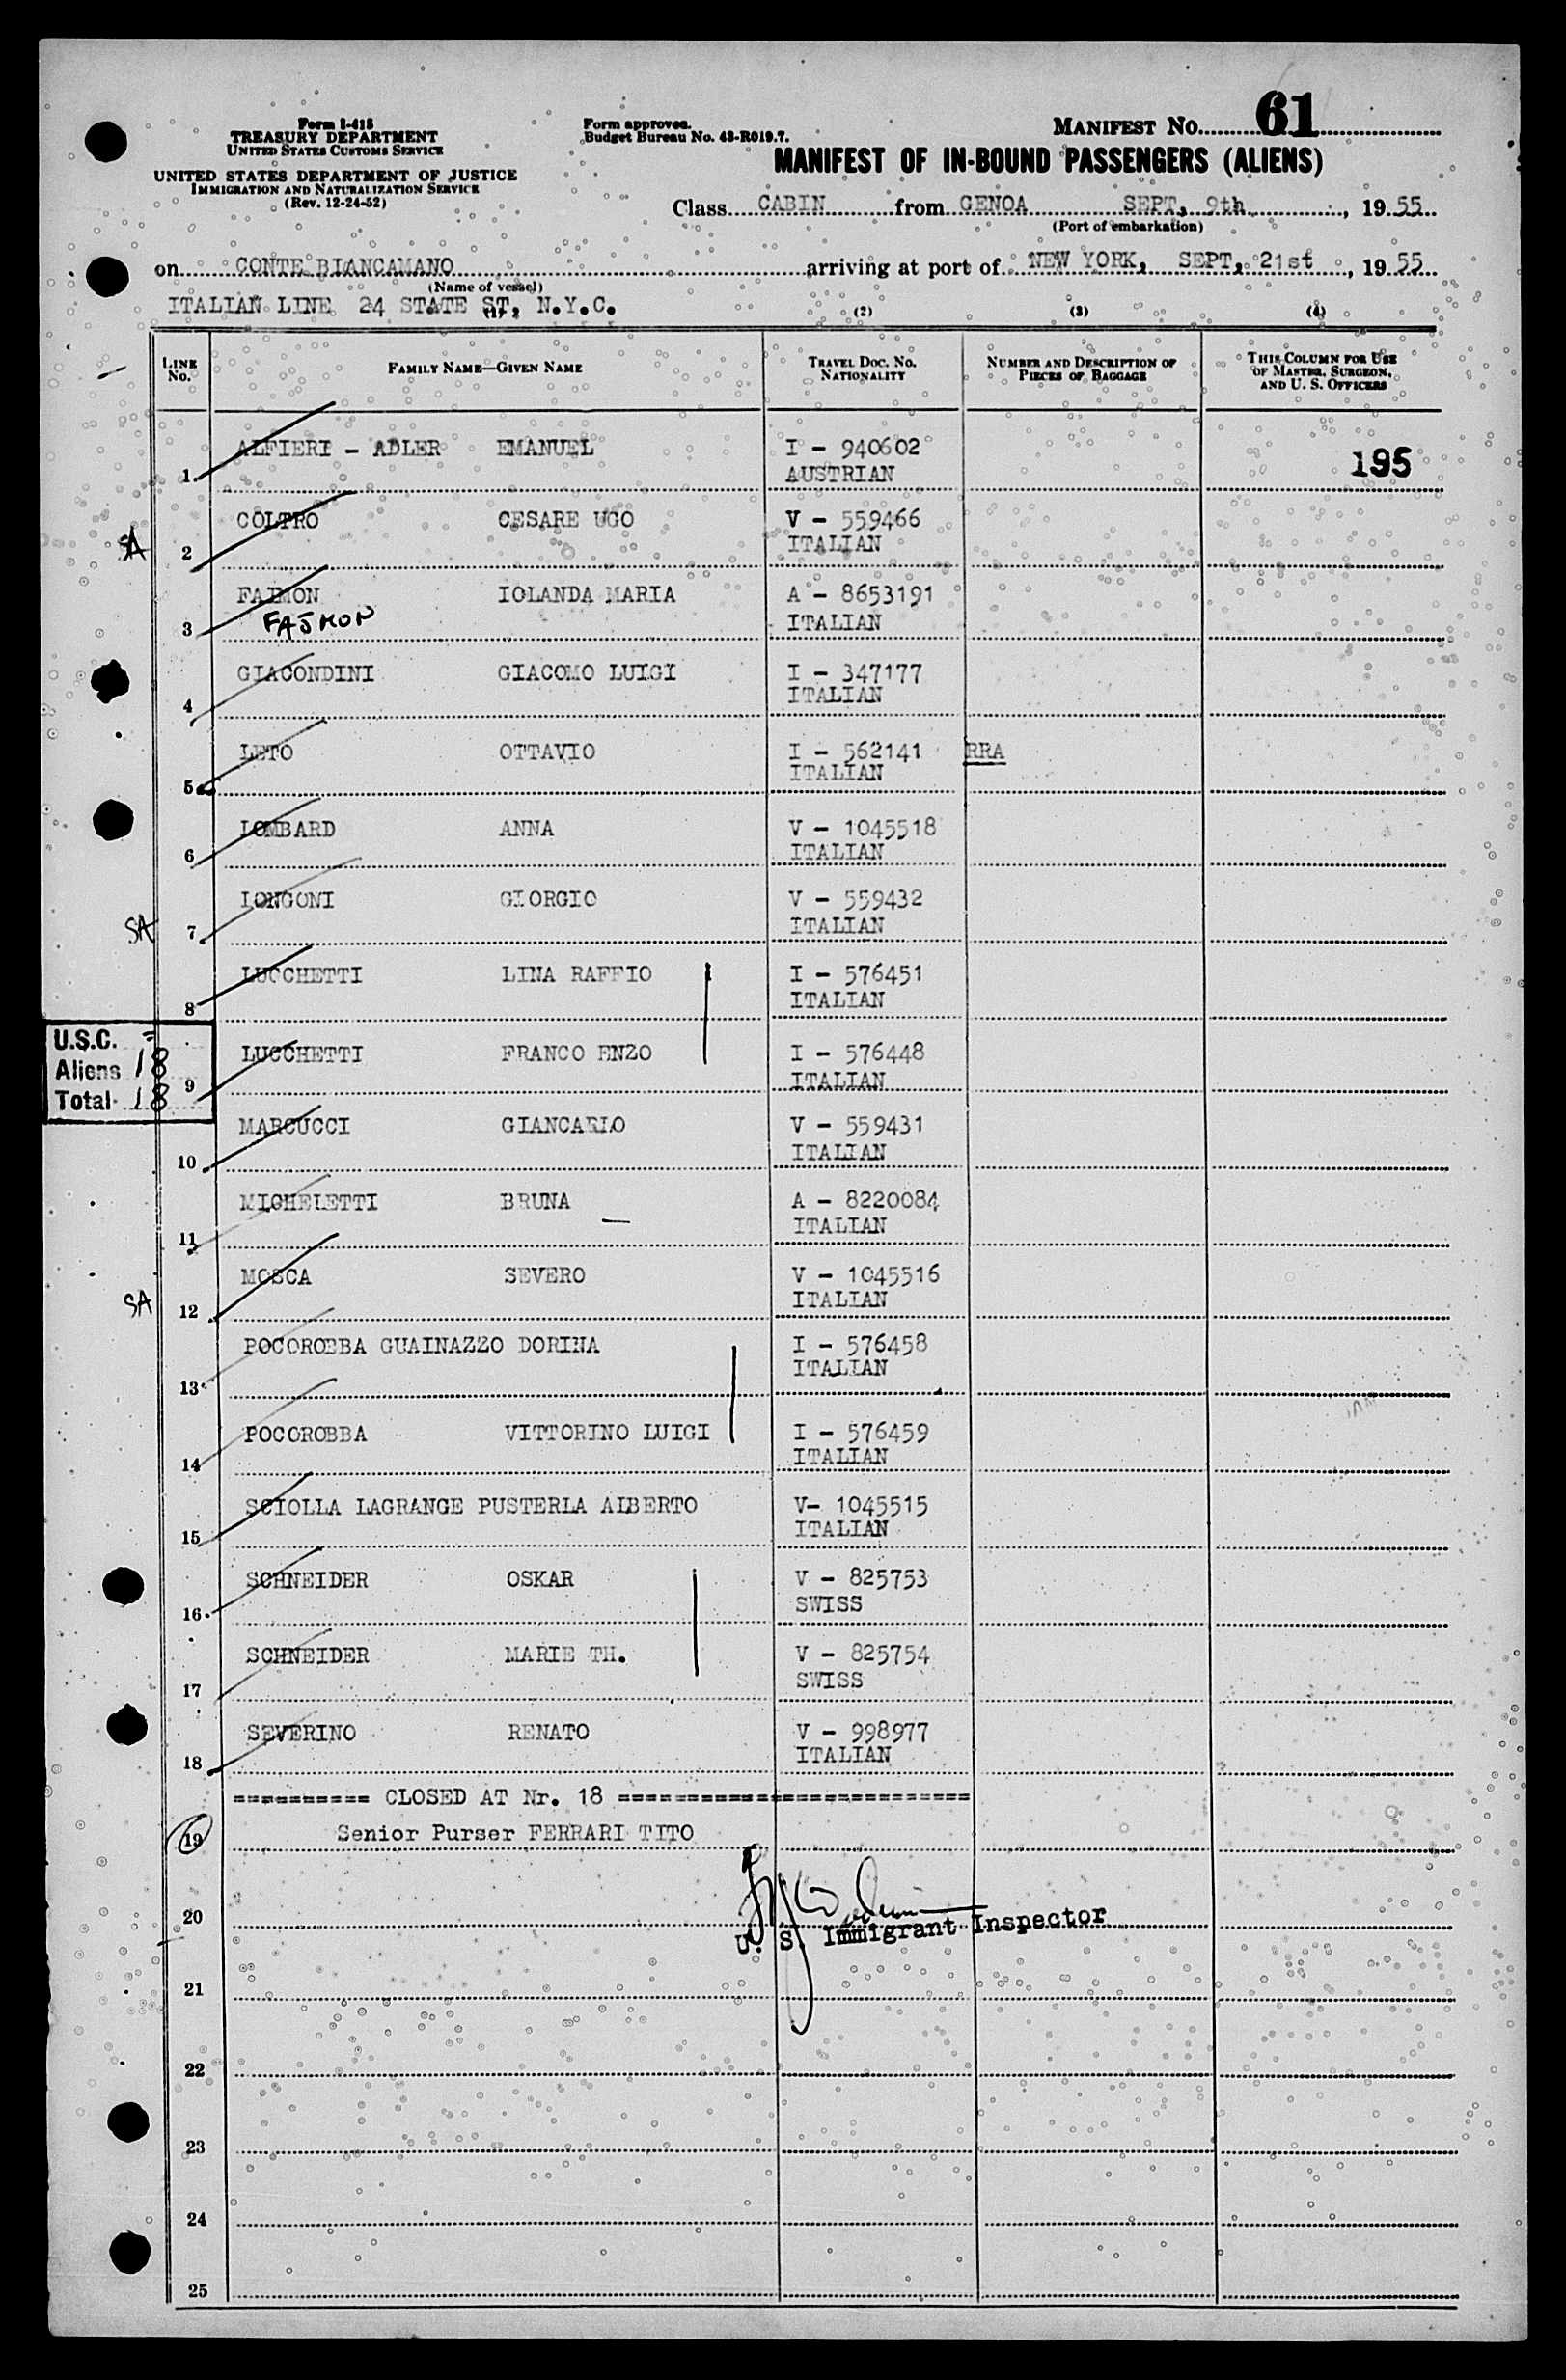 Form I-418
TREASURY DEPARTMENT
UNITED STATES CUSTOMS SERVICE
UNITED STATES DEPARTMENT OF JUSTICE
IMMIGRATION AND NATURALIZATION SERVICE
(Rev. 12-24-52)
Form approved.
Budget Bureau No. 43-R019.7.
MANIFEST NO. 61
MANIFEST OF IN-BOUND PASSENGERS (ALIENS)
Class CABIN from GENOA SEPT, 9th, 19 55
(Port of embarkation)
on CONTE BIANCAMANO arriving at port of NEW YORK, SEPT, 21st, 19 55
(Name of vessel)
ITALIAN LINE 24 STATE ST, N.Y.C.
(1) (2) (3) (4)
LINE NO. FAMILY NAME—GIVEN NAME TRAVEL DOC. NO. NATIONALITY NUMBER AND DESCRIPTION OF PIECES OF BAGGAGE THIS COLUMN FOR USE OF MASTER, SURGEON, AND U. S. OFFICERS
1 ALFIERI - ADLER EMANUEL I - 940602 195
AUSTRIAN
SA 2 COLTRO CESARE UGO V - 559466
ITALIAN
3 FAIMON IOLANDA MARIA A - 8653191
FAJMON ITALIAN
4 GIACONDINI GIACOMO LUIGI I - 347177
ITALIAN
5 LETO OTTAVIO I - 562141 RRA
ITALIAN
6 LOMBARD ANNA V - 1045518
ITALIAN
SA 7 LONGONI GIORGIO V - 559432
ITALIAN
8 LUCCHETTI LINA RAFFIO I - 576451
ITALIAN
U.S.C. =
Aliens 18
Total 18
9 LUCCHETTI FRANCO ENZO I - 576448
ITALIAN
10 MARCUCCI GIANCARLO V - 559431
ITALIAN
11 MIGHELETTI BRUNA A - 8220084
ITALIAN
SA 12 MOSCA SEVERO V - 1045516
ITALIAN
13 POCOROBBA GUAINAZZO DORINA I - 576458
ITALIAN
14 POCOROBBA VITTORINO LUIGI I - 576459
ITALIAN
15 SCIOLLA LAGRANGE PUSTERLA ALBERTO V- 1045515
ITALIAN
16 SCHNEIDER OSKAR V - 825753
SWISS
17 SCHNEIDER MARIE TH. V - 825754
SWISS
18 SEVERINO RENATO V - 998977
ITALIAN
========== CLOSED AT Nr. 18 ==========================
19 Senior Purser FERRARI TITO
20
U. S. Immigrant Inspector
21
22
23
24
25